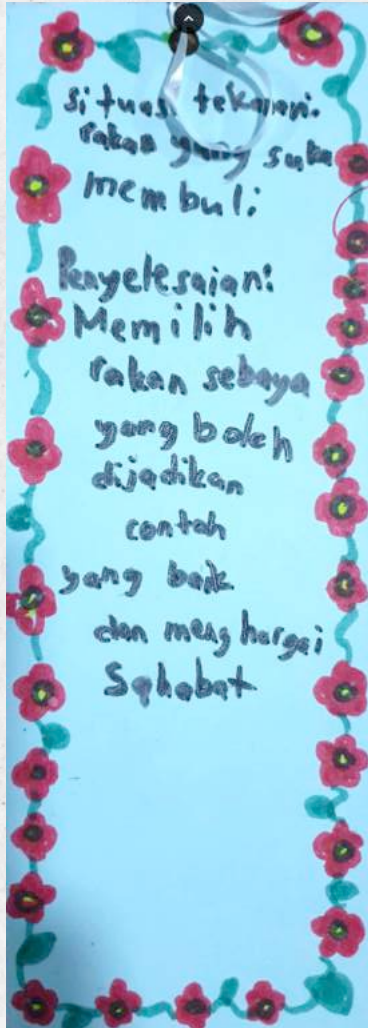 situasi tekanan:
rakan yang suka
membuli
Penyelesaian:
Memilih
rakan sebaya
yang boleh
dijadikan
contoh
yang baik
dan menghargai
Sahabat